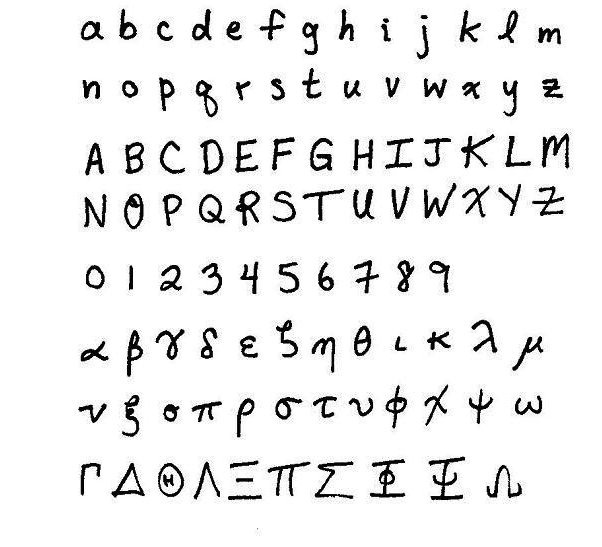 a b c d e f g h i j k l m
n o p q r s t u v w x y z
A B C D E F G H I J K L M
N O P Q R S T U V W X Y Z
0 1 2 3 4 5 6 7 8 9
α β γ δ ε ζ η θ ι κ λ μ
ν ξ ο π ρ σ τ υ φ χ ψ ω
Γ Δ Θ Λ Ξ Π Σ Φ Ψ Ω